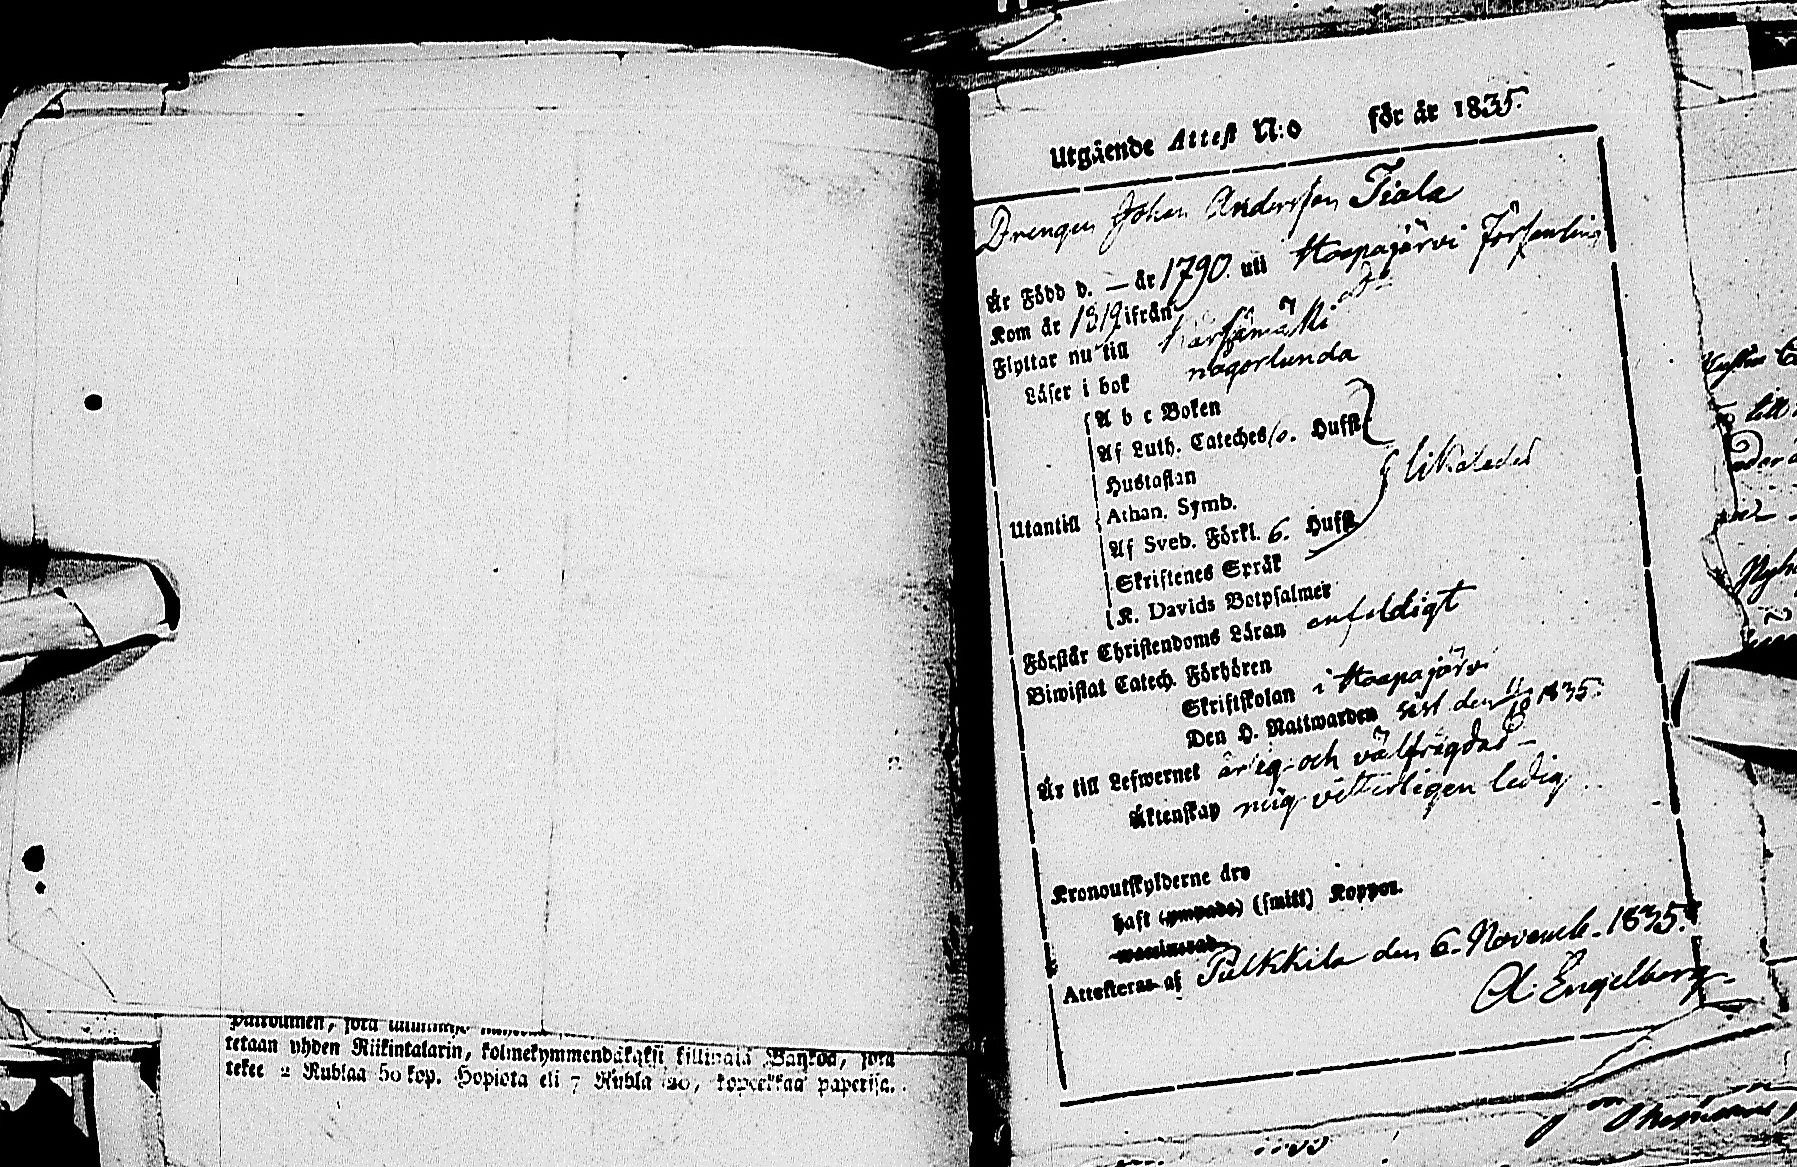 tetaan yhden Riikintalarin, kolmekymmendäkaksi killingiä Bankoa, jota
tekee 2 Rublaa 50 kop. Hopiota eli 7 Rubla 20, kopeekkaa paperisa.
Utgående Attest N:o för år 1835.
Drengen Johan Andersson Tiala
Är Född d. — år 1790 uti Haapajärvi Församling
Kom år 1819 ifrån d:o
Flyttar nu till Kärsämäki
Läser i bok någorlunda
A b c Boken
Af Luth. Cateches 6. Hufst.
Hustaflan
Utantill Athan. Symb. likaledes
Af Sveb. Förkl. 6. Hufst.
Skriftenes Språk
K. Davids Botpsalmer
Förstår Christendoms Läran enfeldigt
Biwistat Catech. Förhören
Skriftskolan i Haapajärvi
Den H. Nattwarden sist den 11/10 1835.
Är till Lefwernet ärlig och välfrägdad
Äktenskap mig vitterligen ledig
Kronoutskylderne äro
haft (ympade) (smitt) Koppor.
Attesteras af Pulkkila den 6. Novemb. 1835.
A. Engelberg